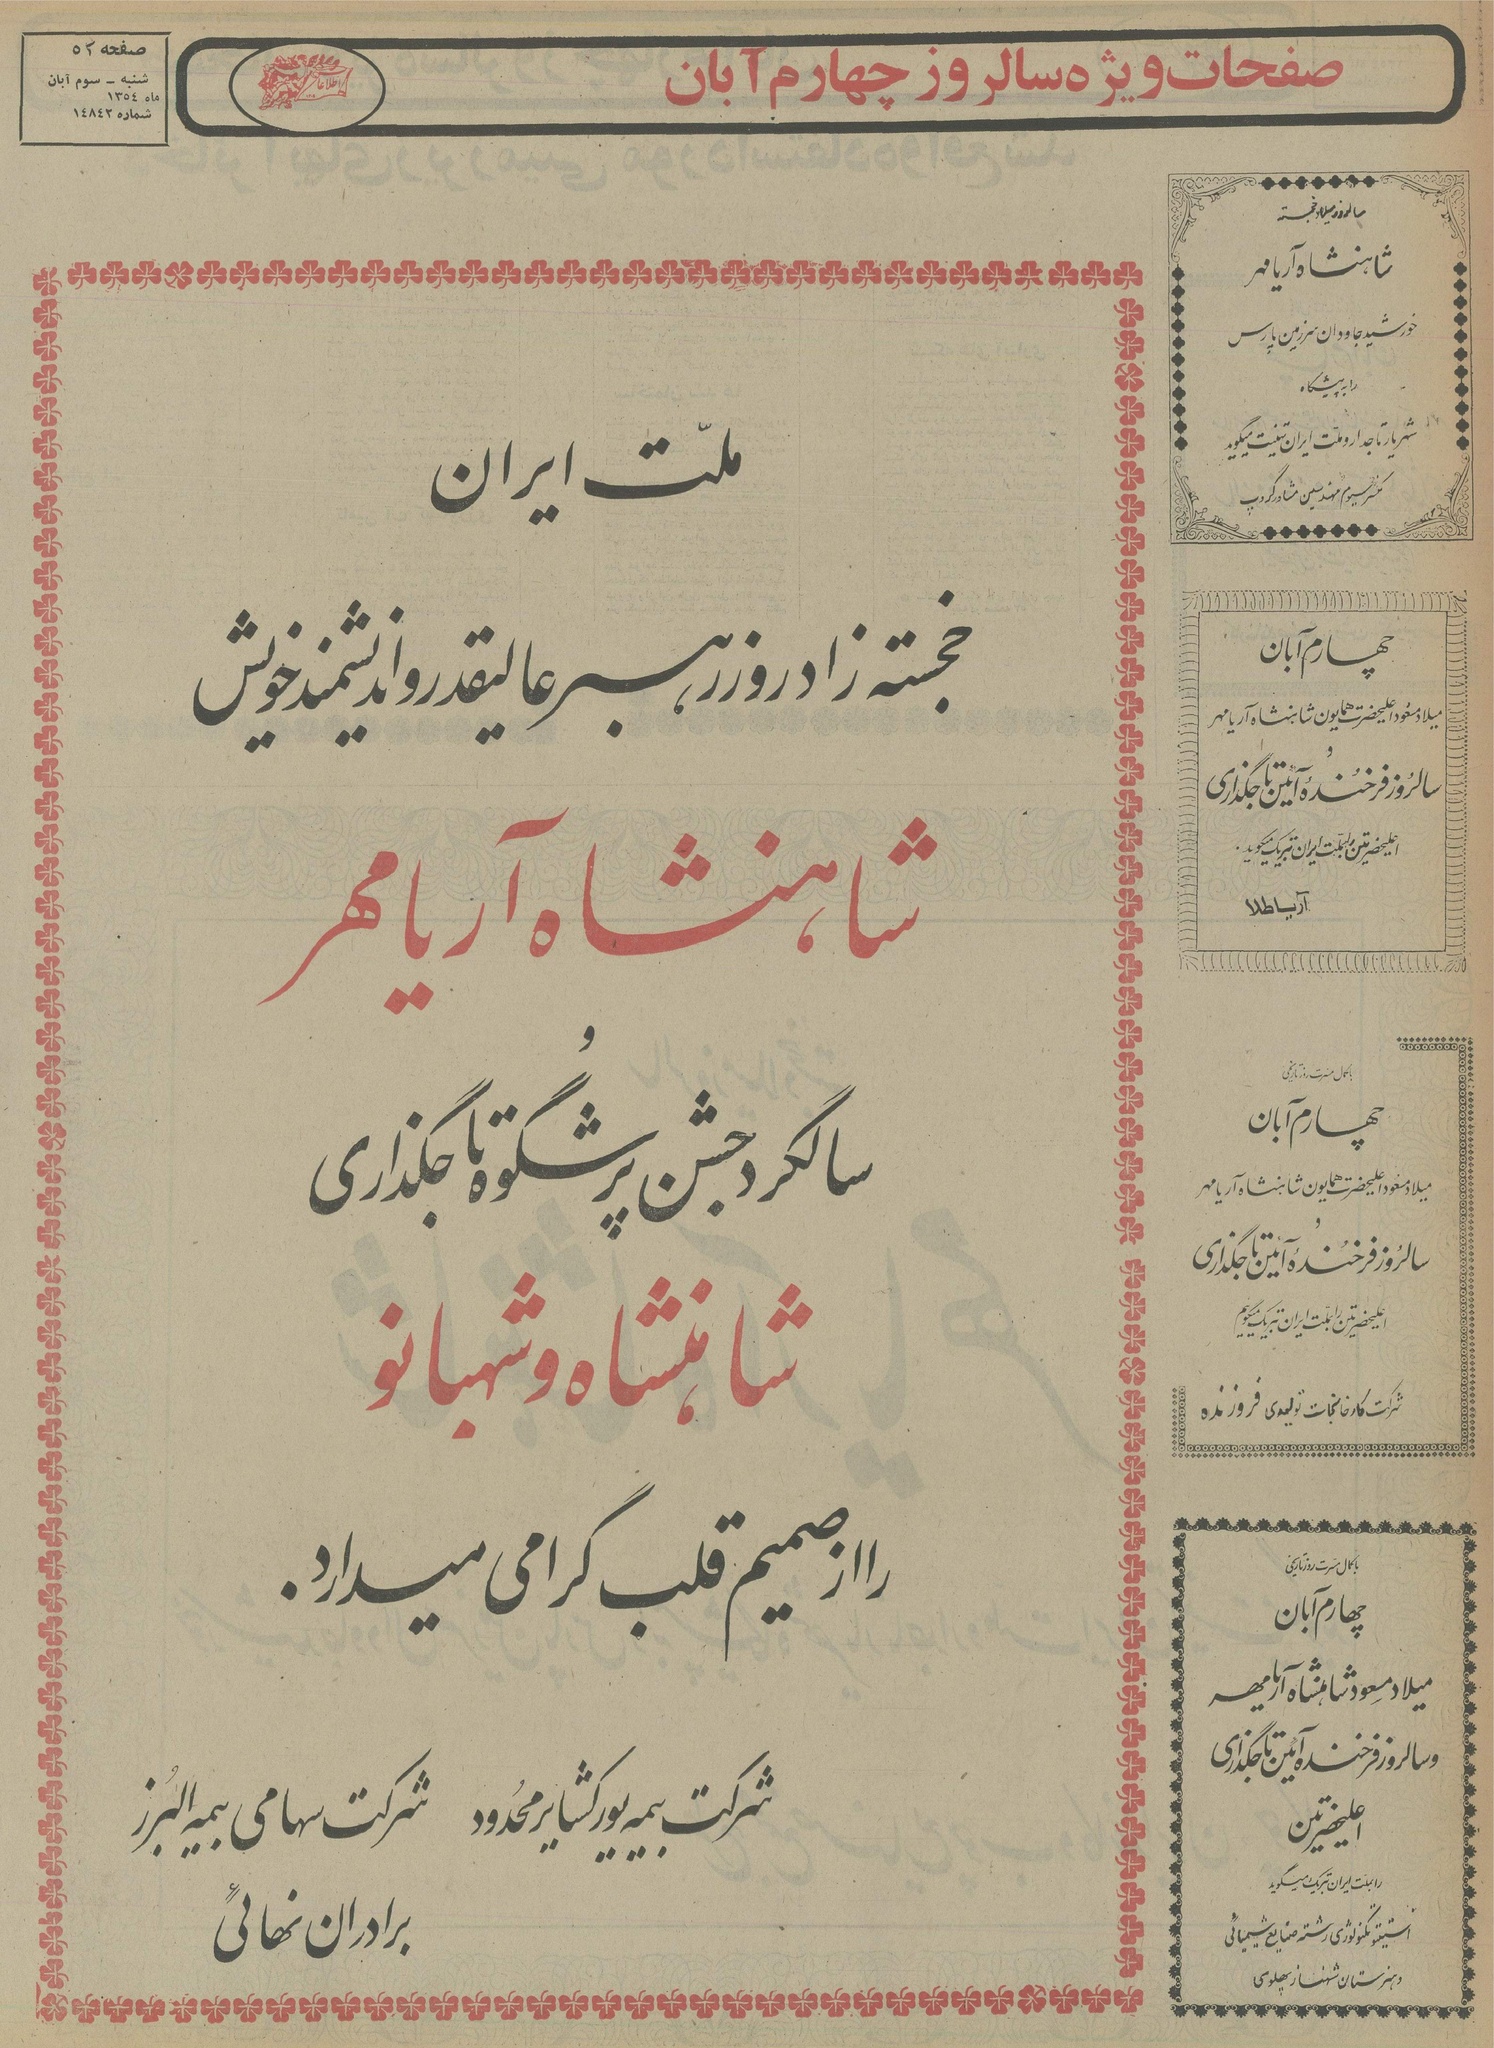 صفحات ویژه سالروز چهارم آبان
اطلاعات
صفحه ۵۲
شنبه ــ سوم آبان
ماه ۱۳۵٤
شماره ۱٤۸٤۲
سالروز میلاد خجسته
شاهنشاه آریامهر
خورشید جاودان سرزمین پارس
را به پیشگاه
شهریار تاجدار و ملّت ایران تهنیت میگوید
کنسرسیوم مهندسین مشاور گروپ
چهارم آبان
میلاد مسعود اعلیحضرت همایون شاهنشاه آریامهر
و
سالروز فرخندهٔ آئین تاجگذاری
اعلیحضرتین را بملّت ایران تبریک میگوید.
آریا طلا
با کمال مسرت روز تاریخی
چهارم آبان
میلاد مسعود اعلیحضرت همایون شاهنشاه آریامهر
و
سالروز فرخندهٔ آئین تاجگذاری
اعلیحضرتین را بملّت ایران تبریک میگوئیم
شرکت کارخانجات تولیدی فروزنده
با کمال مسرت روز تاریخی
چهارم آبان
میلاد مسعود شاهنشاه آریامهر
و سالروز فرخنده آئین تاجگذاری
اعلیحضرتین
را بملت ایران تبریک میگوید
انستیتو تکنولوژی رشته صنایع شیمیائی
و هنرستان شهناز پهلوی
ملّت ایران
خجسته زادروز رهبر عالیقدر و اندیشمند خویش
شاهنشاه آریامهر
و
سالگرد جشن پرشگوه تاجگذاری
شاهنشاه و شهبانو
را از صمیم قلب گرامی میدارد.
شرکت بیمه یورکشایر محدود
شرکت سهامی بیمه البرز
برادران نهائی